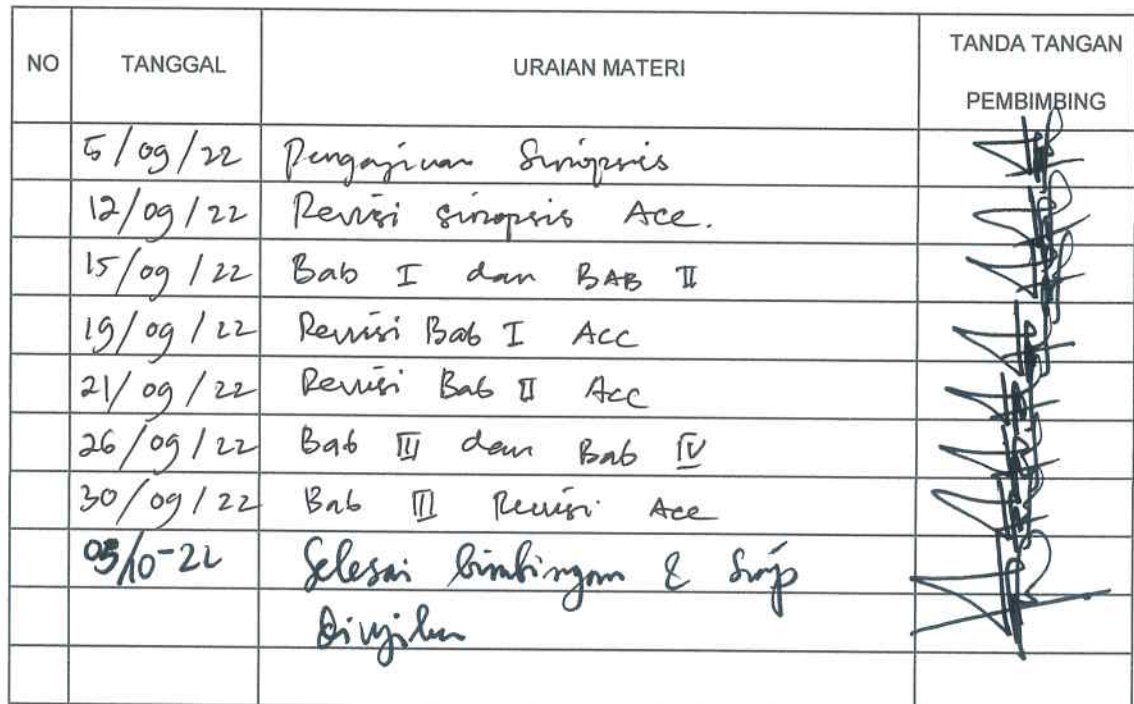 NO TANGGAL URAIAN MATERI TANDA TANGAN PEMBIMBING
5/09/22 Pengajuan Sinopsis
12/09/22 Revisi sinopsis Acc.
15/09/22 Bab I dan BAB II
19/09/22 Revisi Bab I Acc
21/09/22 Revisi Bab II Acc
26/09/22 Bab III dan Bab IV
30/09/22 Bab III Revisi Acc
05/10-22 Selesai bimbingan & siap
Diujikan